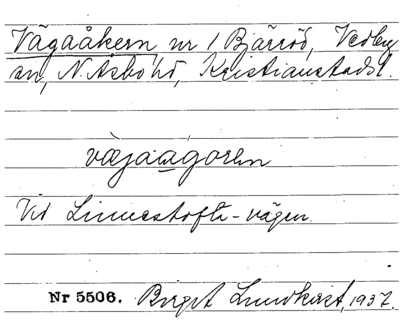 Vägaåkern nr 1 Bjärröd, Vedby
sn, N. Åsbo hd, Kristianstads l.
väjaågoren
Vid Linnestofta-vägen.
Nr 5506. Birgit Lundkvist, 1937.